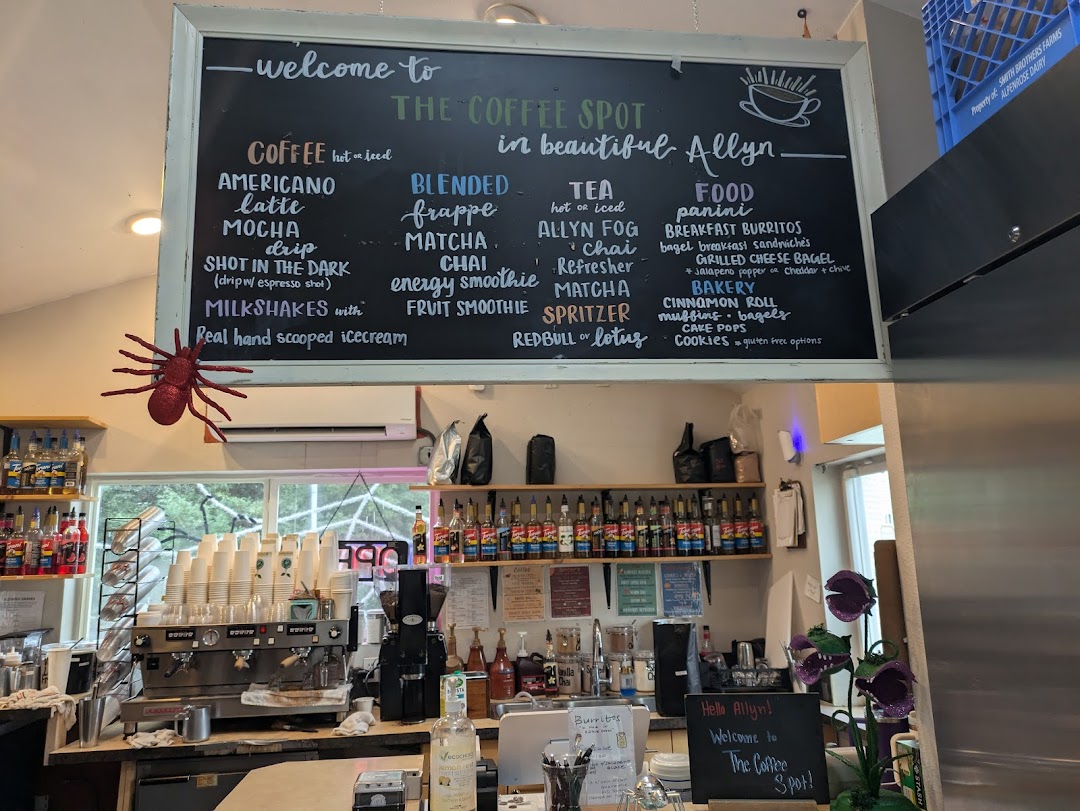 welcome to
THE COFFEE SPOT
in beautiful Allyn
COFFEE hot or iced
AMERICANO
latte
MOCHA
drip
SHOT IN THE DARK
(drip w/ espresso shot)
MILKSHAKES with
Real hand scooped icecream
BLENDED
frappe
MATCHA
CHAI
energy smoothie
FRUIT SMOOTHIE
TEA
hot or iced
ALLYN FOG
Chai
Refresher
MATCHA
SPRITZER
REDBULL or lotus
FOOD
panini
BREAKFAST BURRITOS
bagel breakfast sandwiches
GRILLED CHEESE BAGEL
+ jalapeno popper or cheddar + chive
BAKERY
CINNAMON ROLL
muffins • bagels
CAKE POPS
COOKIES
gluten free options
Property of: SMITH BROTHERS FARMS
ALPENROSE DAIRY
OPE
Burritos
Hello Allyn!
Welcome to
The Coffee
Spot!